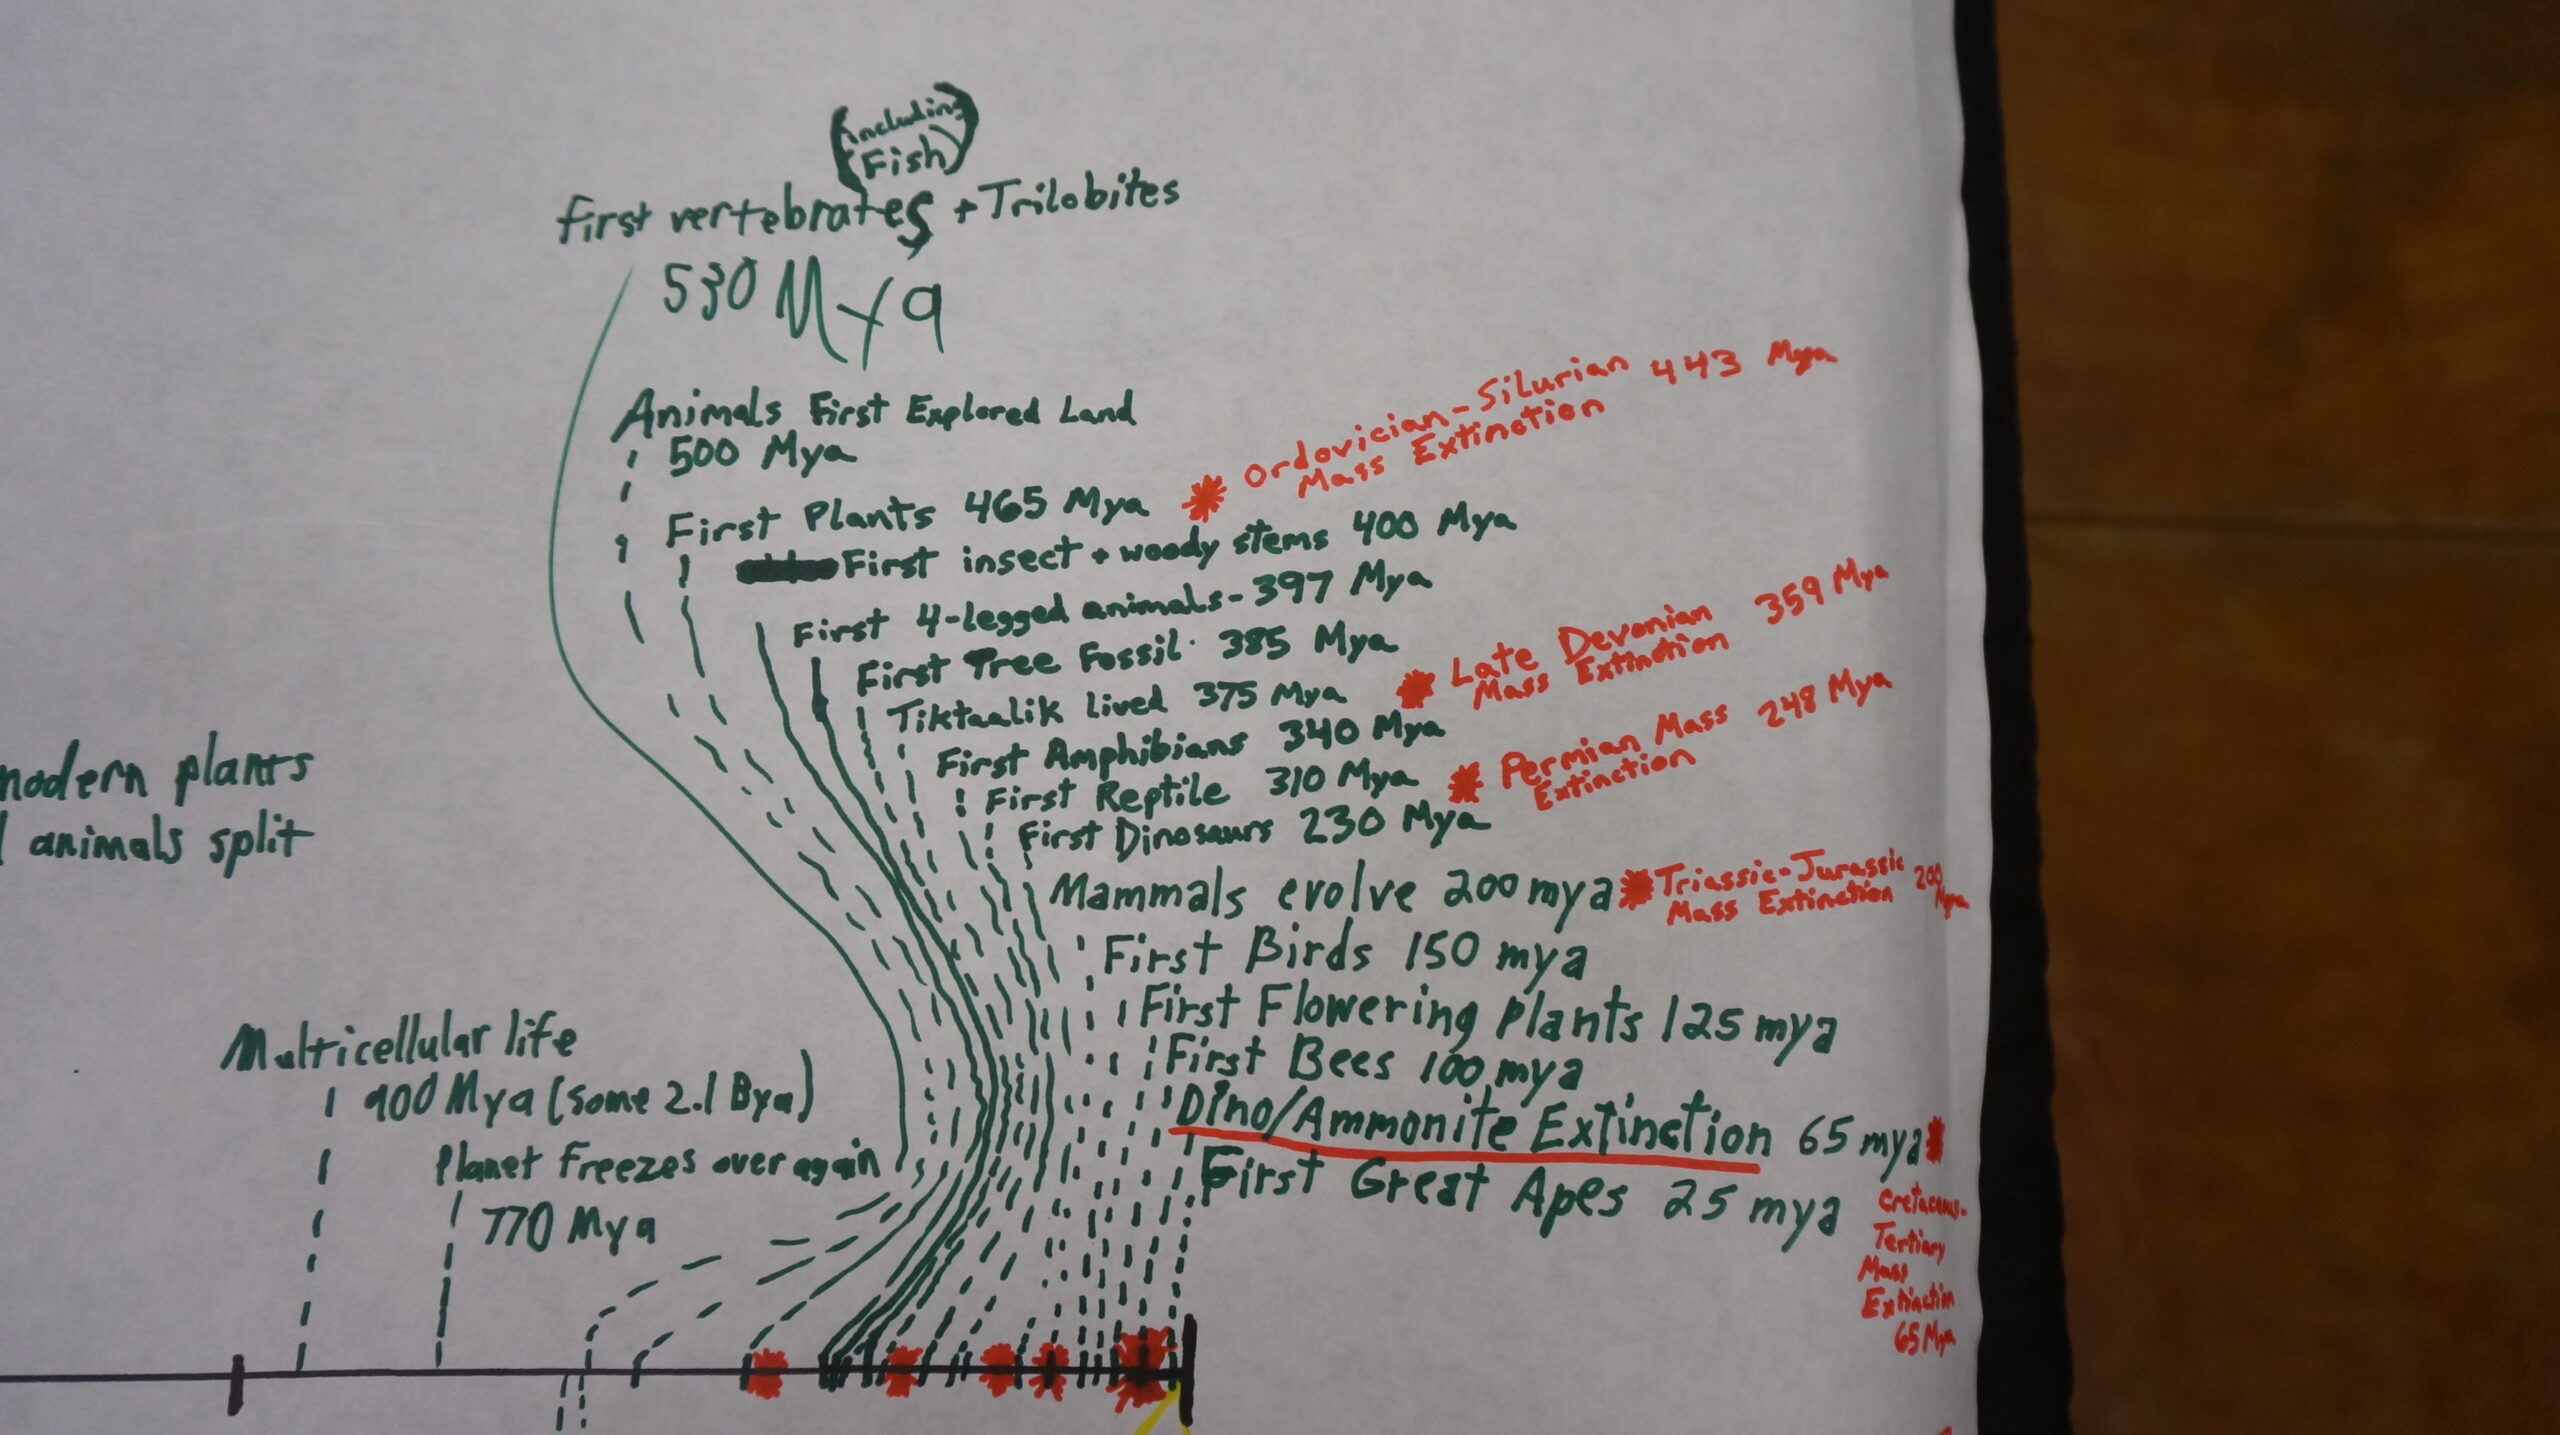 (including
Fish)
first vertebrates + Trilobites
530 Mya
Animals First Explored Land
500 Mya
Ordovician-Silurian 443 Mya
Mass Extinction
First Plants 465 Mya
First insect + woody stems 400 Mya
First 4-legged animals-397 Mya
First Tree Fossil. 385 Mya
Late Devonian 359 Mya
Mass Extinction
Tiktaalik lived 375 Mya
First Amphibians 340 Mya
Permian Mass 248 Mya
Extinction
First Reptile 310 Mya
First Dinosaurs 230 Mya
Mammals evolve 200 mya
Triassic-Jurassic 200 Mya
Mass Extinction
First Birds 150 mya
First Flowering Plants 125 mya
First Bees 100 mya
Dino/Ammonite Extinction 65 mya
First Great Apes 25 mya
Cretaceous-
Tertiary
Mass
Extinction
65 Mya
modern plants
animals split
Multicellular life
900 Mya (some 2.1 Bya)
Planet freezes over again
770 Mya